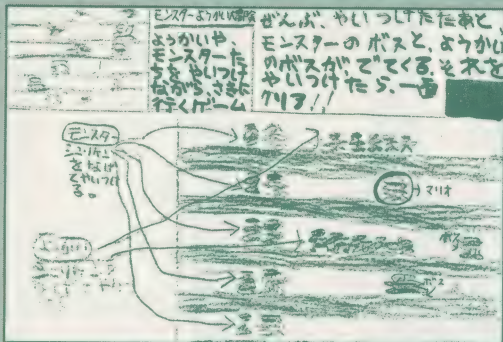 モンスターようかい
ようかいや、
モンスターた
ちをやいつけ
ながら、さきに
行くゲーム
ぜんぶ、やいつけたたあと、
モンスターのボスと、ようかい
のボスがでてくる。それを
やいつけたら、一面
クリア!!
モンスター
をなげ
てやいつけ
る。
マリオ
ようかい
ボス